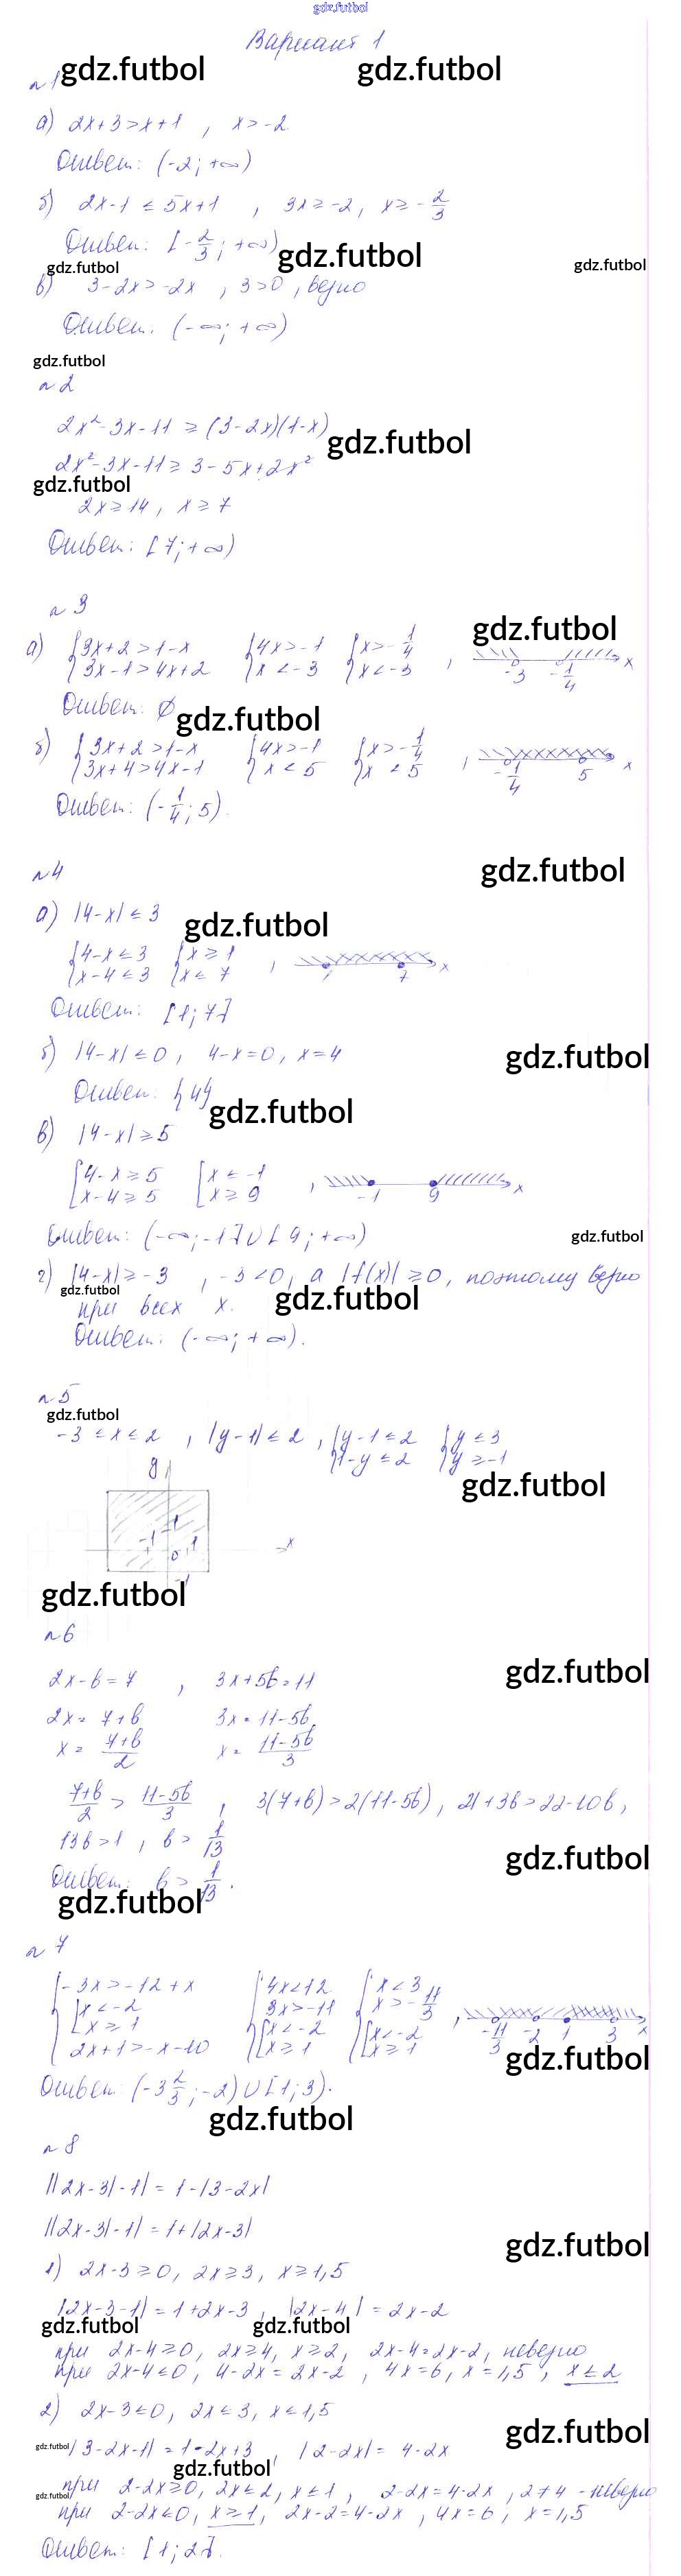 gdz.futbol
Вариант 1
gdz.futbol gdz.futbol
n 1
а) 2x+3>x+1, x>-2.
Ответ: (-2; +∞)
б) 2x-1 ≤ 5x+1, 3x ≥ -2, x ≥ -2/3
Ответ: [-2/3; +∞)
gdz.futbol
gdz.futbol gdz.futbol
в) 3-2x>-2x, 3>0, верно
Ответ: (-∞; +∞)
gdz.futbol
n 2
2x²-3x-11 ≥ (3-2x)(1-x)
gdz.futbol
2x²-3x-11 ≥ 3-5x+2x²
gdz.futbol
2x ≥ 14, x ≥ 7
Ответ: [7; +∞)
n 3
gdz.futbol
а) {3x+2>1-x {4x>-1 {x>-1/4
{3x-1>4x+2 {x<-3 {x<-3, -3 -1/4 x
Ответ: ∅
gdz.futbol
б) {3x+2>1-x {4x>-1 {x>-1/4
{3x+4>4x-1 {x<5 {x<5, -1/4 5 x
Ответ: (-1/4; 5).
n 4
gdz.futbol
а) |4-x| ≤ 3
gdz.futbol
{4-x ≤ 3 {x ≥ 1
{x-4 ≤ 3 {x ≤ 7, 1 7 x
Ответ: [1; 7]
б) |4-x| ≤ 0, 4-x=0, x=4
gdz.futbol
Ответ: {4}
gdz.futbol
в) |4-x| ≥ 5
[4-x ≥ 5 [x ≤ -1
[x-4 ≥ 5 [x ≥ 9, -1 9 x
Ответ: (-∞; -1]∪[9; +∞)
gdz.futbol
г) |4-x| ≥ -3, -3<0, а |f(x)| ≥ 0, поэтому верно
gdz.futbol gdz.futbol
при всех x.
Ответ: (-∞; +∞).
n 5
gdz.futbol
-3 ≤ x ≤ 2, |y-1| ≤ 2, {y-1 ≤ 2 {y ≤ 3
{1-y ≤ 2 {y ≥ -1
gdz.futbol
y
1
-1 1 x
0
-1
gdz.futbol
n 6
gdz.futbol
2x-b=7, 3x+5b=11
2x=7+b 3x=11-5b
x=(7+b)/2 x=(11-5b)/3
(7+b)/2 > (11-5b)/3, 3(7+b)>2(11-5b), 21+3b>22-10b,
13b>1, b>1/13
gdz.futbol
Ответ: b>1/13.
gdz.futbol
n 7
{-3x>-12+x {4x<12 {x<3
{[x<-2 {3x>-11 {x>-11/3
{[x ≥ 1 {[x<-2 {[x<-2, -11/3 -2 1 3 x
{2x+1>-x-10 {[x ≥ 1 {[x ≥ 1
gdz.futbol
Ответ: (-3 2/3; -2)∪[1; 3).
gdz.futbol
n 8
||2x-3|-1| = 1-|3-2x|
||2x-3|-1| = 1+|2x-3|
gdz.futbol
1) 2x-3 ≥ 0, 2x ≥ 3, x ≥ 1,5
|2x-3-1| = 1+2x-3, |2x-4| = 2x-2
gdz.futbol gdz.futbol
при 2x-4 ≥ 0, 2x ≥ 4, x ≥ 2, 2x-4=2x-2, неверно
при 2x-4 ≤ 0, 4-2x=2x-2, 4x=6, x=1,5, x ≤ 2
2) 2x-3 ≤ 0, 2x ≤ 3, x ≤ 1,5
gdz.futbol
gdz.futbol |3-2x-1| = 1-2x+3, |2-2x| = 4-2x
gdz.futbol
при 2-2x ≥ 0, 2x ≤ 2, x ≤ 1, 2-2x=4-2x, 2≠4 - неверно
gdz.futbol
при 2-2x ≤ 0, x ≥ 1, 2x-2=4-2x, 4x=6, x=1,5
Ответ: [1; 2].